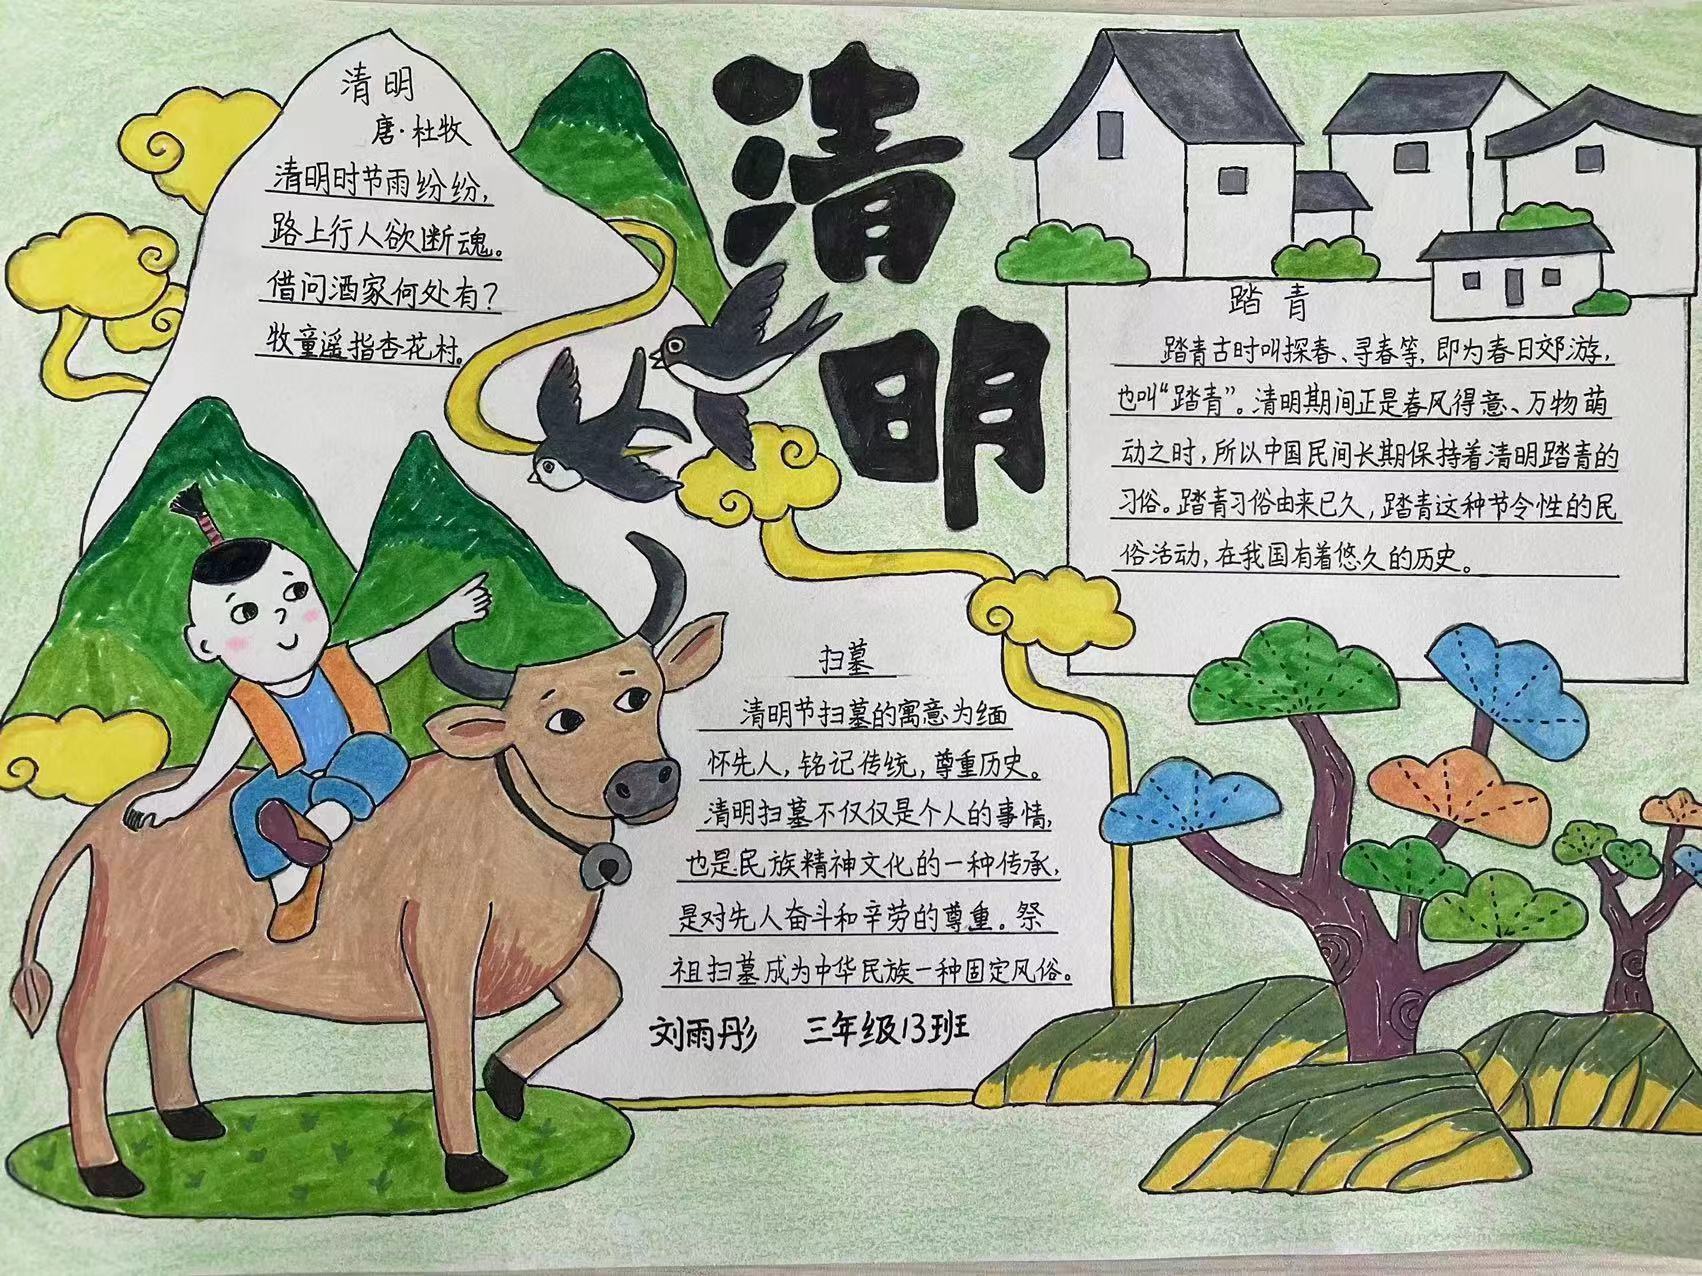 清明
清明
唐·杜牧
清明时节雨纷纷,
路上行人欲断魂。
借问酒家何处有?
牧童遥指杏花村。
踏青
踏青古时叫探春、寻春等,即为春日郊游,
也叫“踏青”。清明期间正是春风得意、万物萌
动之时,所以中国民间长期保持着清明踏青的
习俗。踏青习俗由来已久,踏青这种节令性的民
俗活动,在我国有着悠久的历史。
扫墓
清明节扫墓的寓意为缅
怀先人,铭记传统,尊重历史。
清明扫墓不仅仅是个人的事情,
也是民族精神文化的一种传承,
是对先人奋斗和辛劳的尊重。祭
祖扫墓成为中华民族一种固定风俗。
刘雨彤 三年级13班